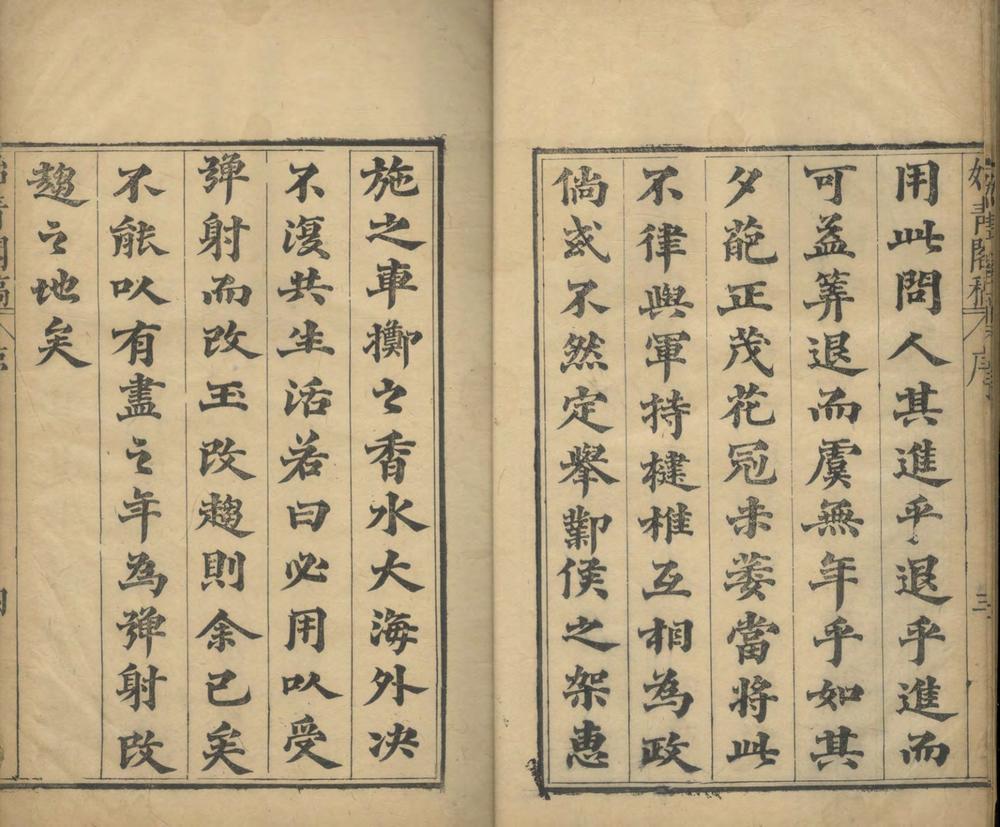 用此問人其進乎退乎進而
可益筭退而虞無年乎如其
夕葩正茂花冠未萎當將此
不律與軍持揵椎互相為政
倘或不然定舉鄴侯之架惠
施之車擲之香水大海外决
不復共生活若曰必用以受
彈射而改玉改趨則余已矣
不能以有盡之年為彈射改
趨之地矣
青閣稿 序 三